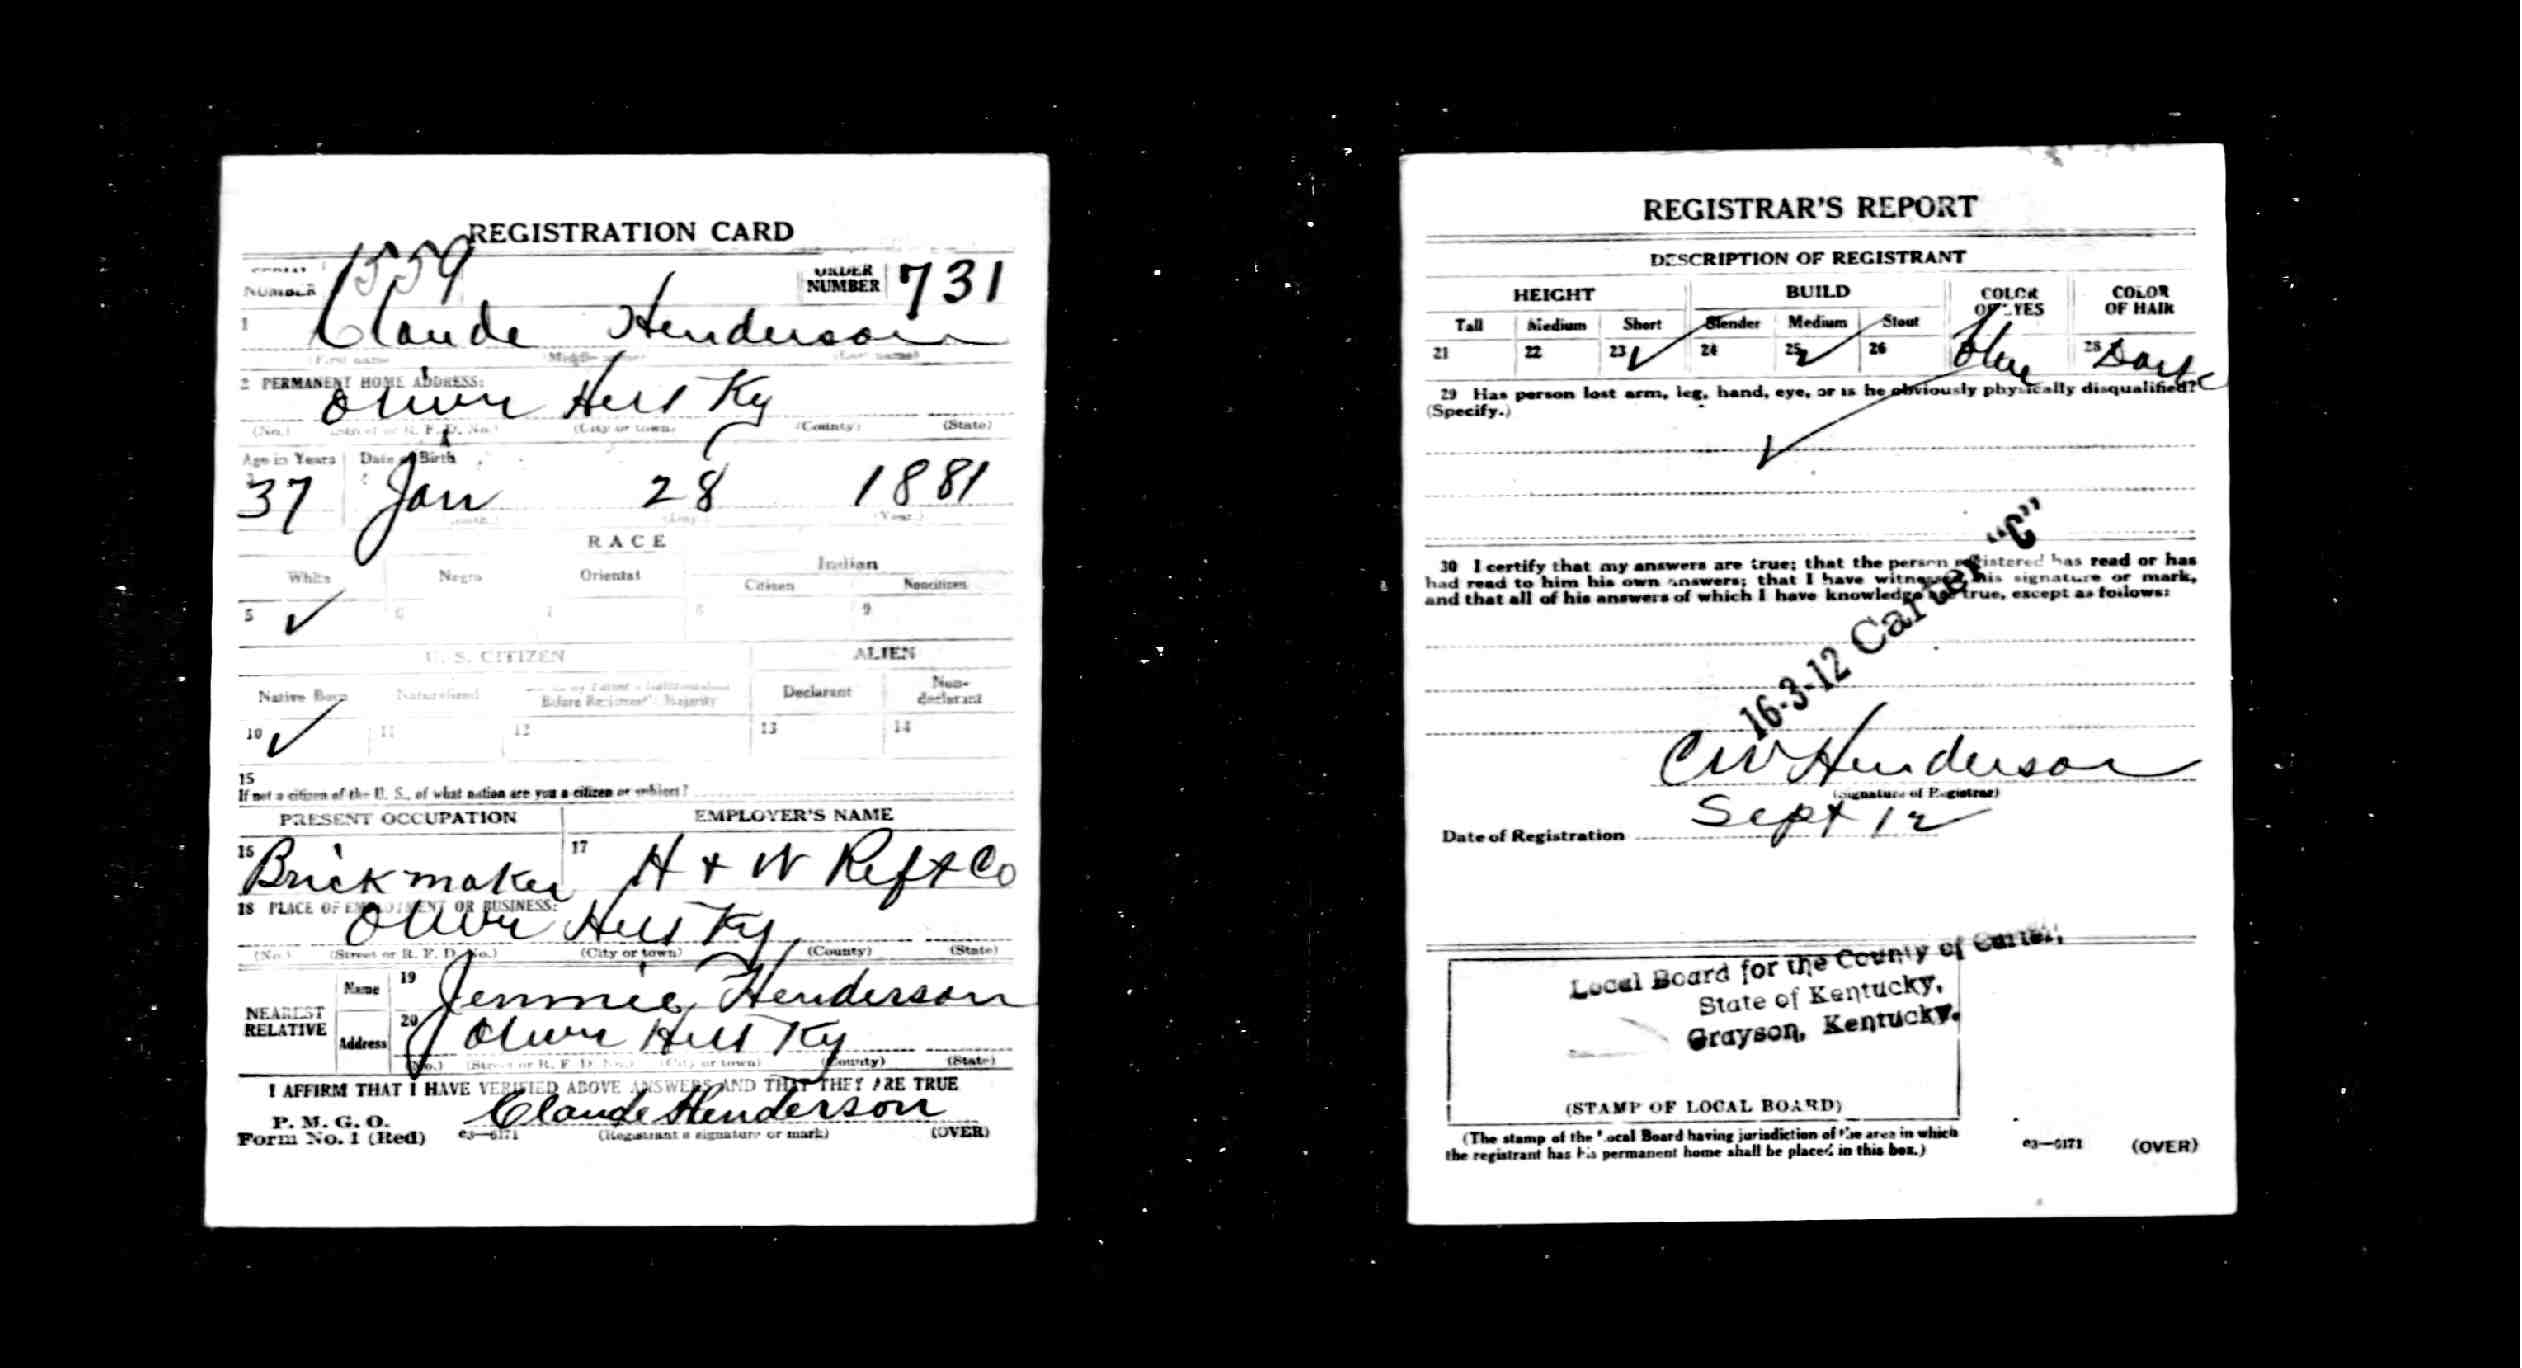 REGISTRATION CARD
SERIAL NUMBER 1559 ORDER NUMBER 731
1 Claude Henderson
(First name) (Middle name) (Last name)
2 PERMANENT HOME ADDRESS:
Olive Hill Ky
(No.) (Street or R. F. D. No.) (City or town) (County) (State)
Age in Years Date of Birth
37 Jan 28 1881
(Month.) (Day.) (Year.)
RACE
White Negro Oriental Indian
Citizen Noncitizen
5 ✓ 6 7 8 9
U. S. CITIZEN ALIEN
Native Born Naturalized Before Registrant's Majority Declarant Non-declarant
10 ✓ 11 12 13 14
15
If not a citizen of the U. S., of what nation are you a citizen or subject?
PRESENT OCCUPATION EMPLOYER'S NAME
16 Brick maker 17 H + W Reft Co
18 PLACE OF EMPLOYMENT OR BUSINESS:
Olive Hill Ky
(No.) (Street or R. F. D. No.) (City or town) (County) (State)
NEAREST RELATIVE
Name 19 Jennie Henderson
Address 20 Olive Hill Ky
(No.) (Street or R. F. D. No.) (City or town) (County) (State)
I AFFIRM THAT I HAVE VERIFIED ABOVE ANSWERS AND THAT THEY ARE TRUE
P. M. G. O.
Form No. 1 (Red) 03—6171 Claude Henderson
(Registrant's signature or mark) (OVER)
REGISTRAR'S REPORT
DESCRIPTION OF REGISTRANT
HEIGHT BUILD COLOR OF EYES COLOR OF HAIR
Tall Medium Short Slender Medium Stout
21 22 23 ✓ 24 25 ✓ 26 Blue 28 Dark
29 Has person lost arm, leg, hand, eye, or is he obviously physically disqualified?
(Specify.)
✓
30 I certify that my answers are true; that the person registered has read or has
had read to him his own answers; that I have witnessed his signature or mark,
and that all of his answers of which I have knowledge are true, except as follows:
16-3-12 Carter "C"
C W Henderson
(Signature of Registrar)
Date of Registration Sept 12
Local Board for the County of Carter,
State of Kentucky,
Grayson, Kentucky.
(STAMP OF LOCAL BOARD)
(The stamp of the Local Board having jurisdiction of the area in which
the registrant has his permanent home shall be placed in this box.)
03—6171 (OVER)